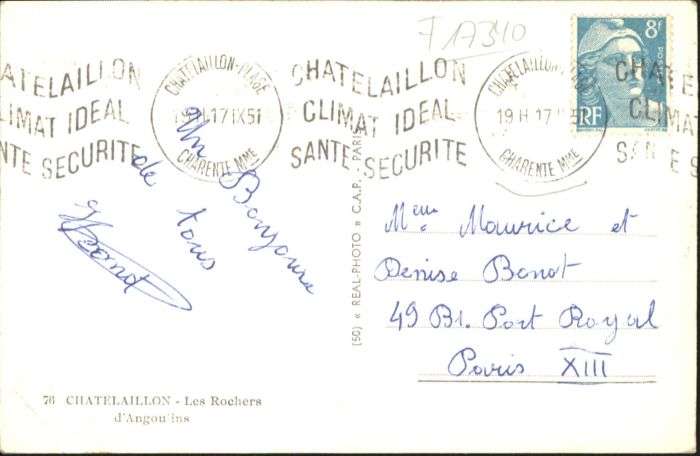 F 17340
8F
POSTES
RF
CHATELAILLON
CLIMAT IDEAL
SANTE SECURITE
CHATELAILLON-PLAGE
17 IX 51
CHARENTE MME
CHATELAILLON
CLIMAT IDEAL
SANTE SECURITE
CHATELAILLON-PLAGE
19 H 17
CHARENTE MME
CHATE
CLIMA
SAN E S
Un Bonjour
de tous
Meur Maurice et
Denise Benot
49 Bl. Port Royal
Paris XIII
(50) « REAL-PHOTO » C.A.P. - PARIS
76 CHATELAILLON - Les Rochers
d'Angoulins